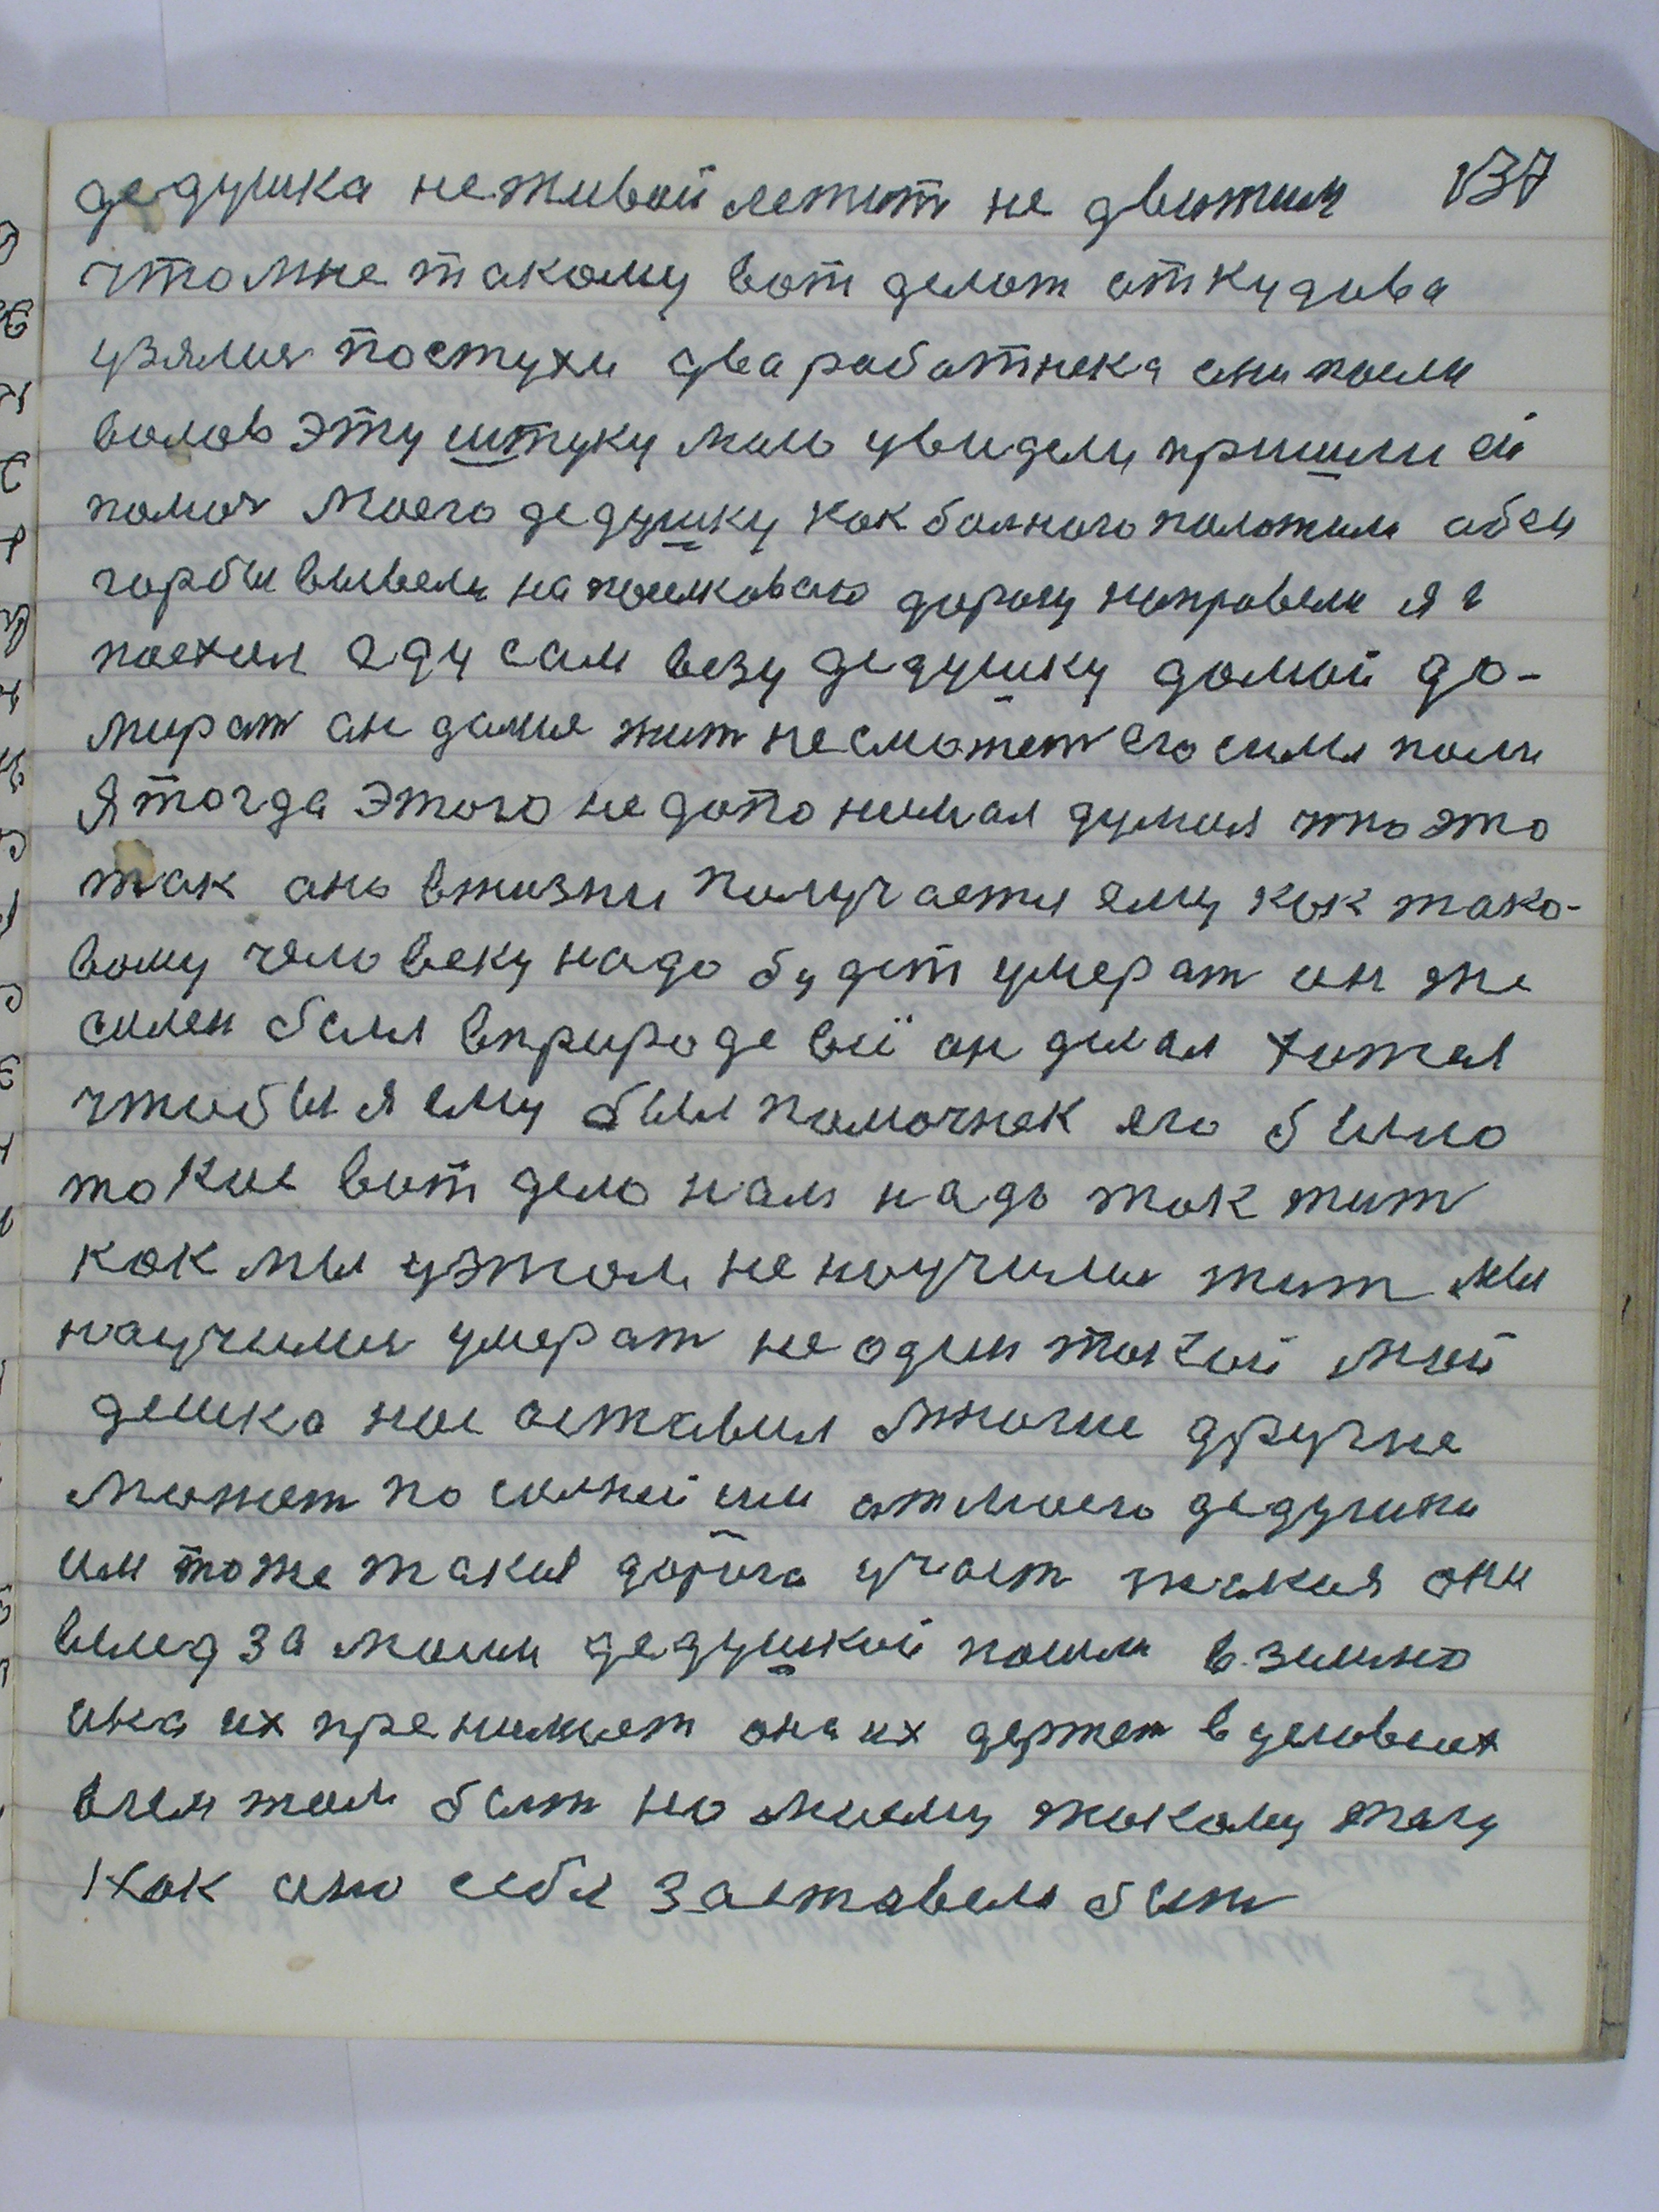 дедушка неживой лежит не движим 137
что мне такому вот делат откудова
узялися постухи два работнека они посли
волов эту штуку мою увидели пришли ей
помоч моего дедушку как болного положили
горбы вывели на дорогу направели я и
поехал еду сам везу дедушку домой до-
мират он далше жит не сможет его сили
Я тогда этого не допонимал думал что это
так оно в жизни получается ему как тако-
вому человеку надо будет умерат он же
силен был в природе всё он делал хотел
чтобы я ему был помочнек его было
токие вот дело нам надо так жит
как мы у этом не научилис жит мы
научилис умерат не один такой мой
дешка нас оставил многие другие
может по силней или от моего дедушки
им тоже такая дорога участ такая они
вслед за моим дедушкой пошли в землю
она их пренимает она их держет в условиях
всем там быт но моему такому телу
как оно себя заставело быт